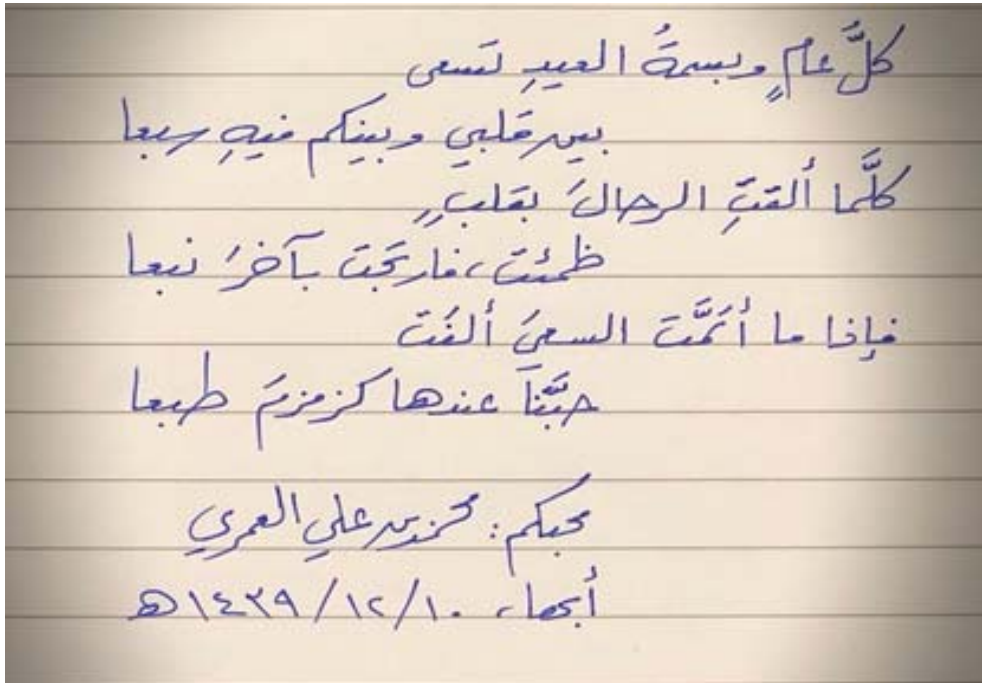 كلَّ عامٍ وبسمةُ العيدِ تَسعى
بين قلبي وبينكم فيهِ سبعا
كلَّما ألقتِ الرحالَ بقلبٍ
ظمئت، فارتجت بآخرَ نبعا
فإذا ما أتمَّت السعيَ ألفَت
حبَّنا عندها كزمزمَ طبعا
محبكم: محمد بن علي العمري
أبها، ١٤٣٩/١٢/١٠هـ